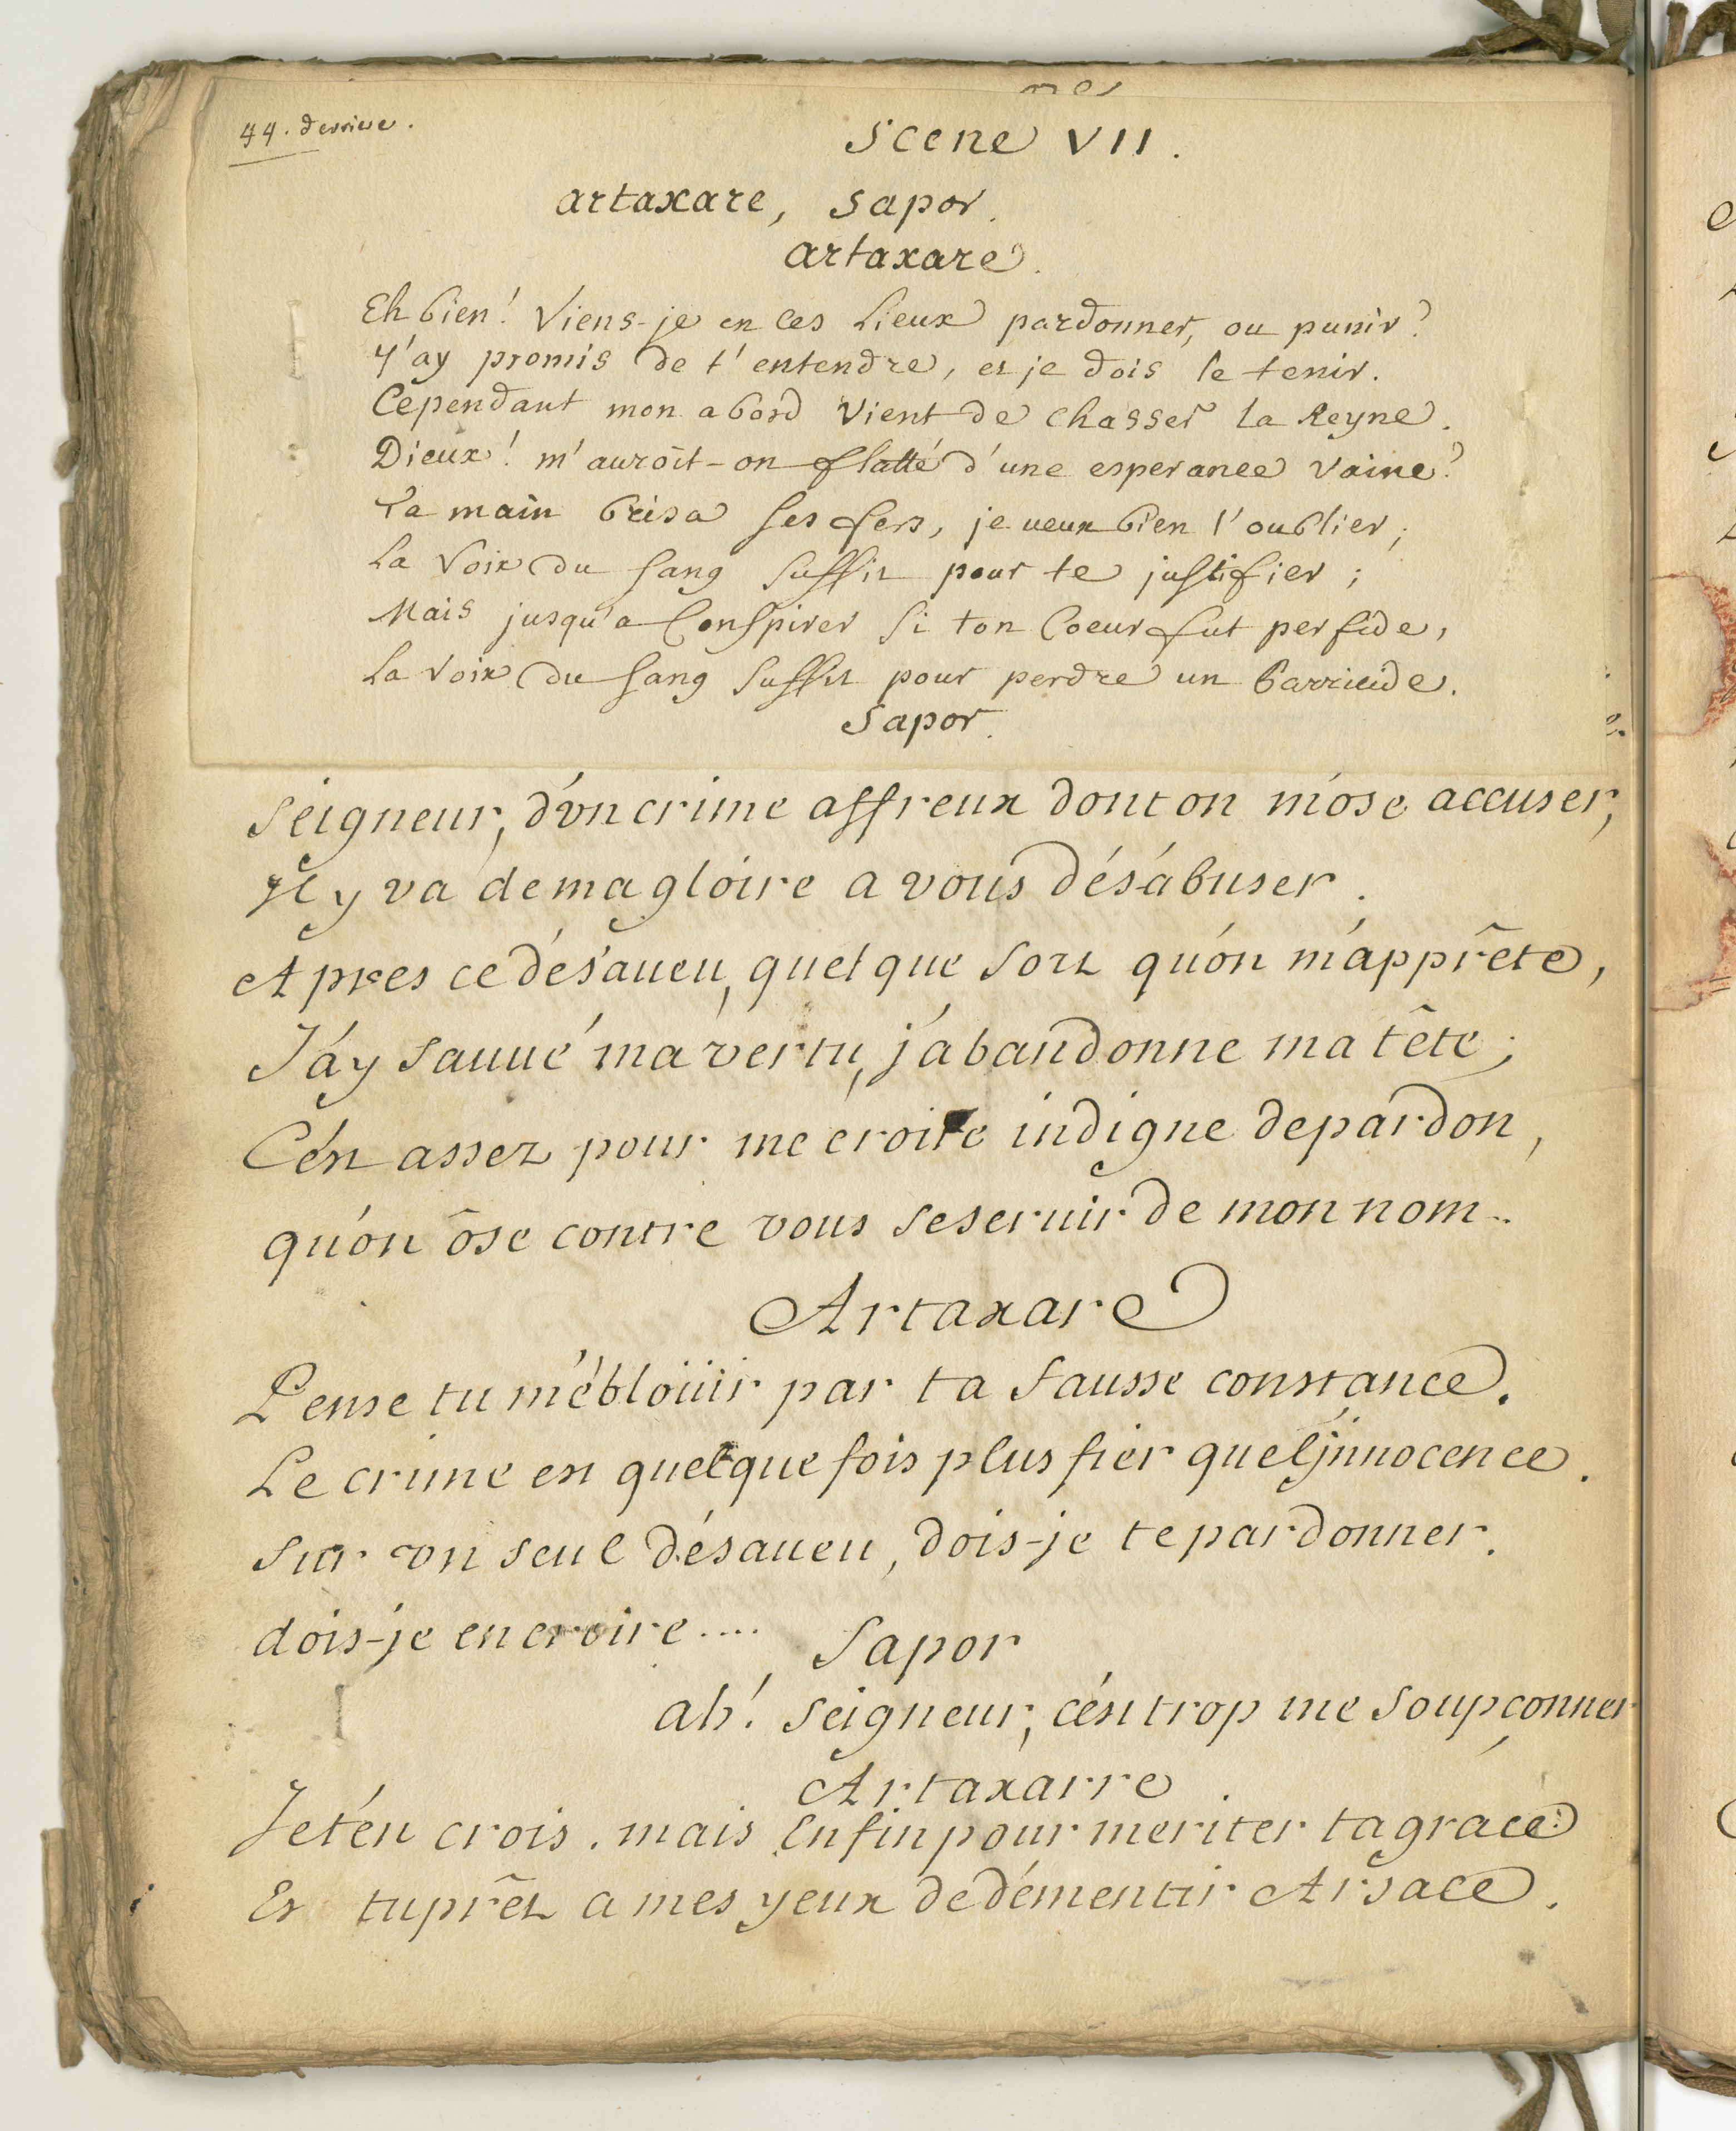 44. derriere.
Scene VII.
artaxare, Sapor.
artaxare.
Eh bien! Viens-je en ces Lieux pardonner, ou punir?
J'ay promis de t'entendre, et je dois le tenir.
Cependant mon abord vient de chasser la Reyne.
Dieux! m'auroit-on flatté d'une esperance vaine?
Ta main brisa ses fers, je veux bien l'oublier;
La Voix du sang suffit pour te justifier;
Mais jusqu'a Conspirer si ton Coeur fut perfide,
La voix du sang suffit pour perdre un Parricide.
Sapor.
Seigneur, d'vn crime affreux dont on m'ose accuser,
Il y va de ma gloire a vous désabuser.
Apres ce désaueu, quelque sort qu'on m'apprête,
J'ay sauué ma vertu, j'abandonne ma tête;
C'est assez pour me croire indigne de pardon,
qu'on ôse contre vous se seruir de mon nom..
Artaxare
Pense tu m'éblöuir par ta fausse constance.
Le crime est quelque fois plus fier que l'jnnocence.
Sur vn seul désaueu, dois-je te pardonner.
dois-je en croire....
Sapor
ah! Seigneur, c'est trop me soupçonner
Artaxarre
Je t'en crois. mais Enfin pour meriter ta grace
Es tu prêt a mes yeux de démentir Arsace.